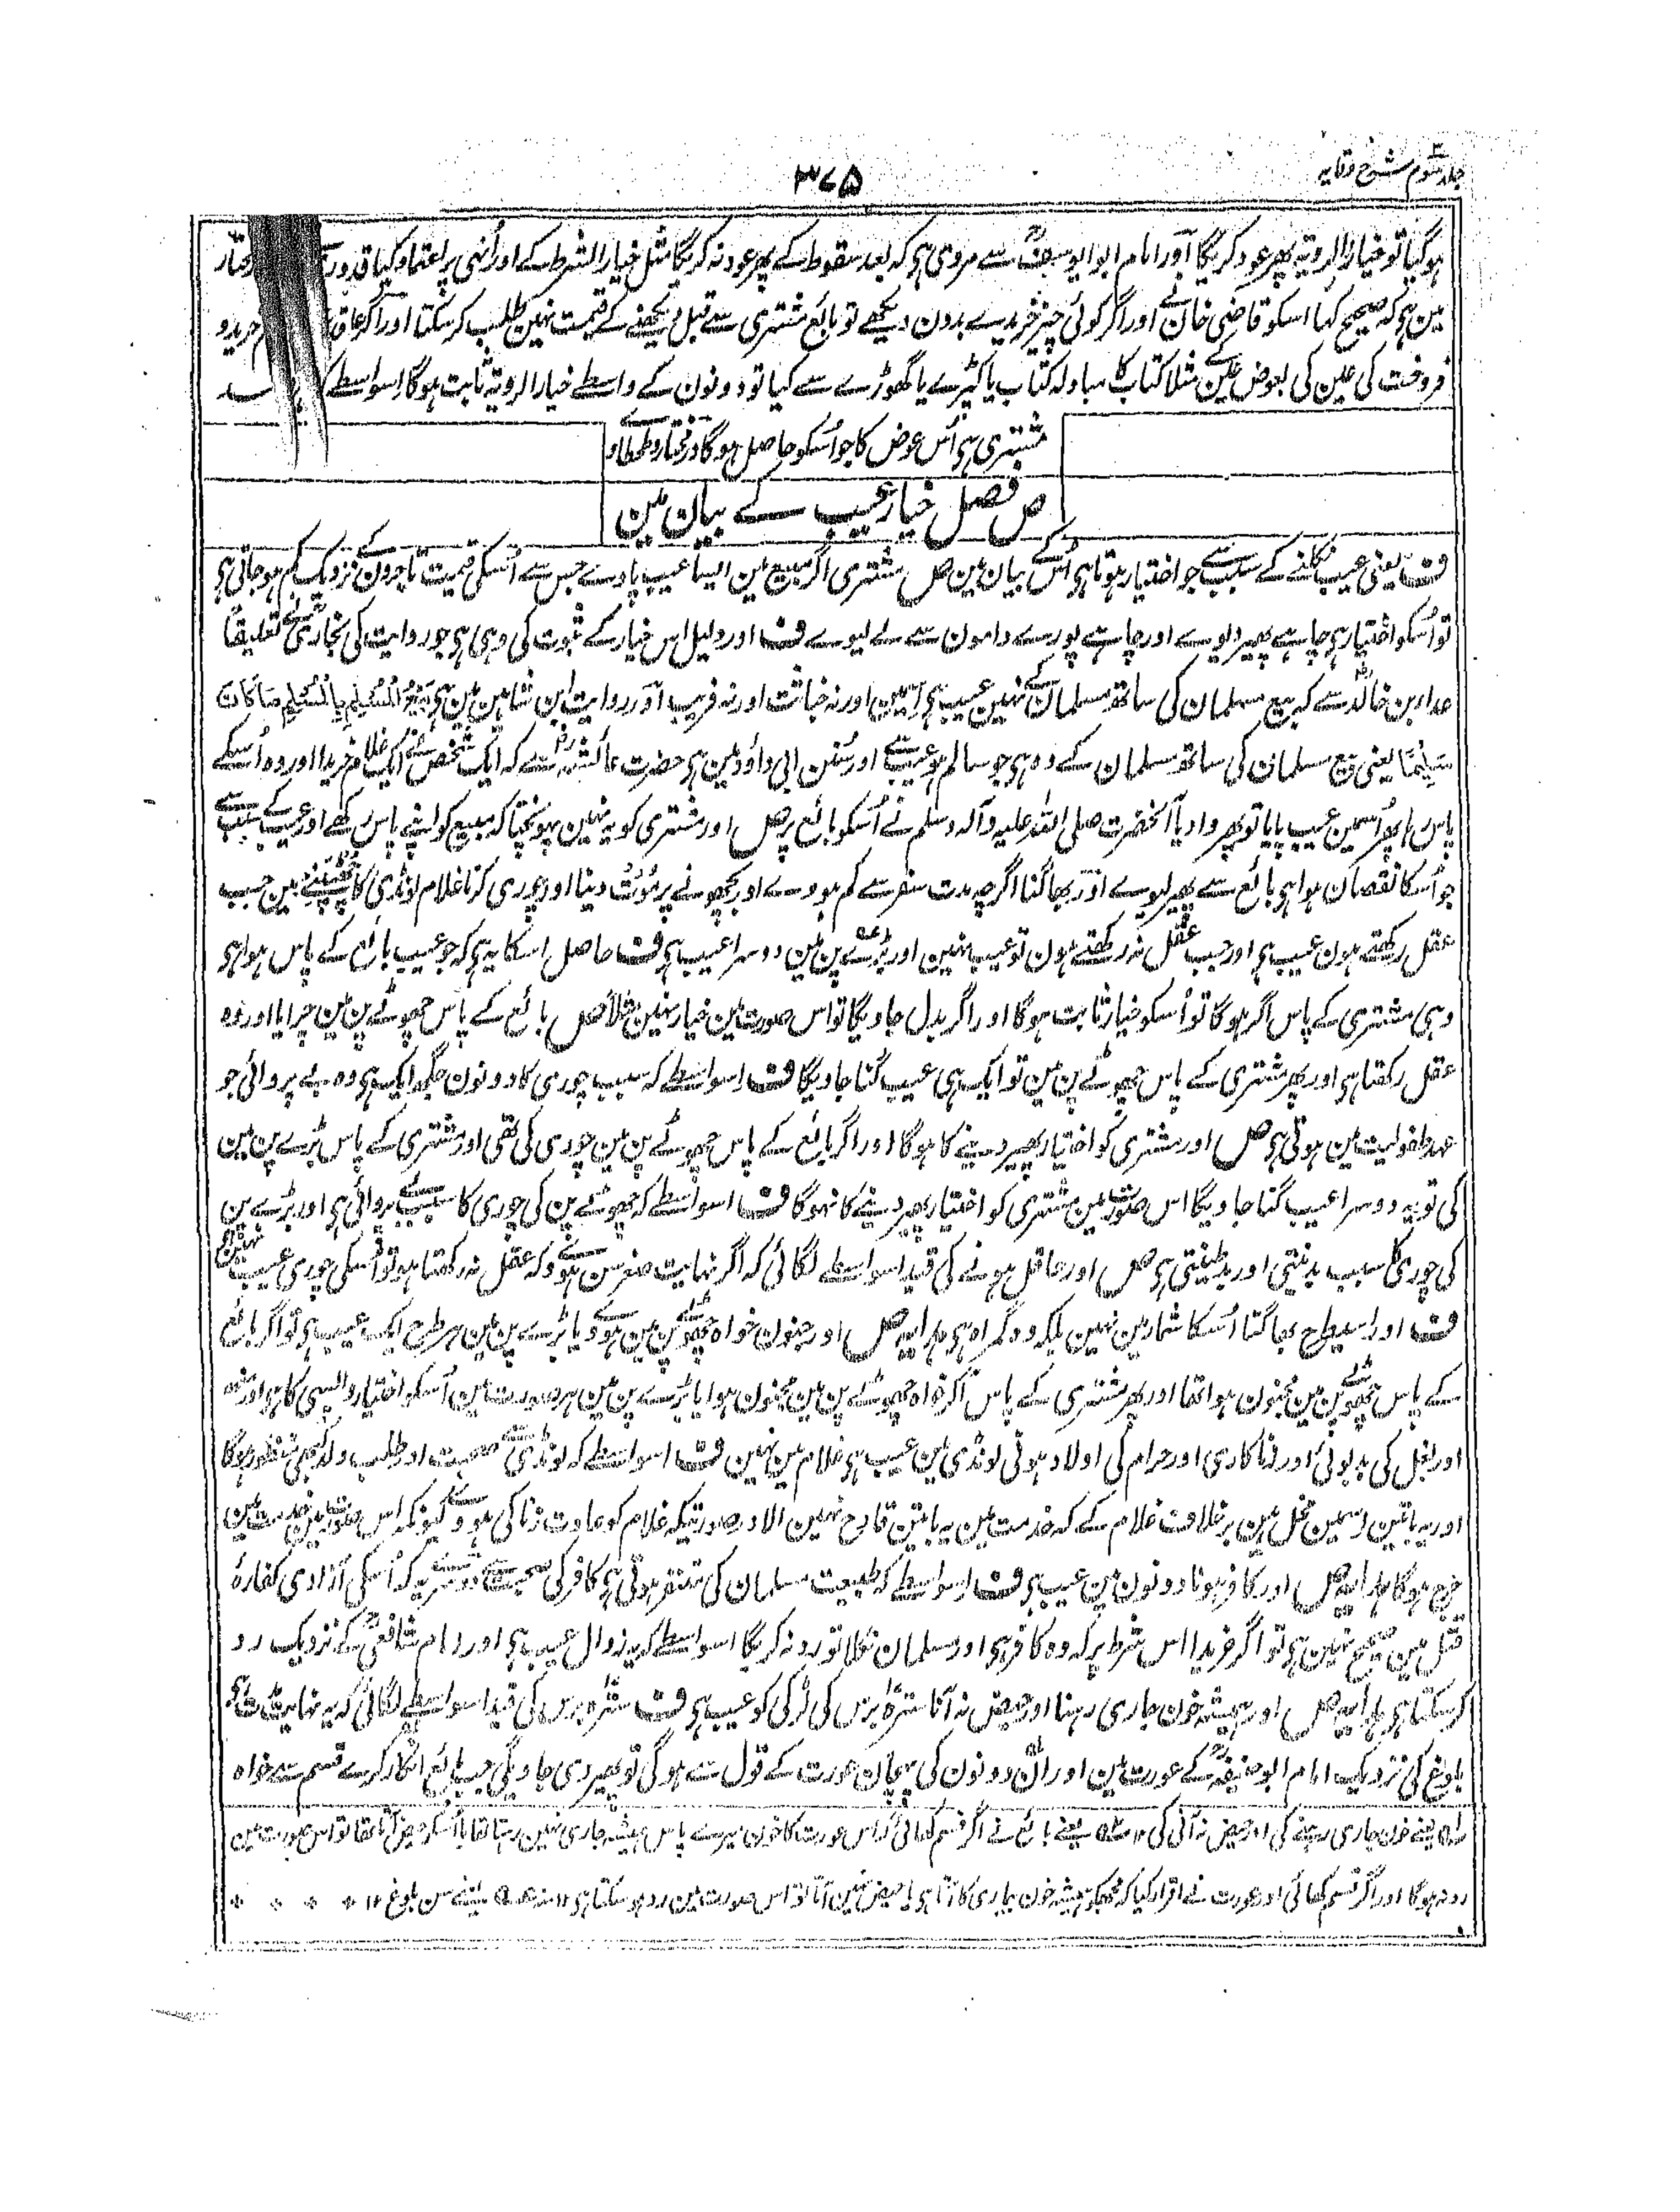 جلد سوم شرح وقایہ
۳۶۵
ہوگیا تو خیار الرویۃ پھر عود کریگا اور امام ابو یوسفؒ سے مروی ہی کہ بعد سقوط کے پھر عود نہ کریگا مثل خیار الشرط کے اور اُنہی پر اعتماد کیا قدوری
مین ہی کہ صحیح کہا اسکو قاضی خان نے اور اگر کوئی چیز خریدے بدون دیکھے تو بائع مشتری سے قبل دیکھنے کے قیمت نہین طلب کرسکتا اور اگر
فروخت کی عین کی بعوض عین کے مثلا کتاب کا مبادلہ کتاب یا کپڑے یا گھوڑے سے کیا تو دونون کے واسطے خیار الرویۃ ثابت ہوگا اسواسطے کہ
مشتری ہی اُس عوض کا جو اُسکو حاصل ہوگا درمختار وطحطاوی
ص فصل خیار عیب کے بیان مین
ف یعنی عیب نکلنے کے سبب سے جو اختیار ہوتا ہی اُسکے بیان مین ص مشتری اگر مبیع مین ایسا عیب پاوے جس سے اُسکی قیمت تاجرون کے نزدیک کم ہوجاتی ہی
تو اُسکو اختیار ہی چاہے پھیر دیوے اور چاہے پورے دامون سے لے لیوے ف اور دلیل اس خیار کے ثبوت کی وہی ہی جو روایت کی بخاری نے تعلیقاً
عداء بن خالدؓ سے کہ بیع مسلمان کی ساتھ مسلمان کے نہین عیب ہی اسمین اور نہ خباثت اور نہ فریب اور روایت ابن شاہین مین ہی بَیْعُ الْمُسْلِمِ بِالْمُسْلِمِ مَا كَانَ
سَلِیْمًا یعنی بیع مسلمان کی ساتھ مسلمان کے وہ ہی جو سالم ہو عیب سے اور سُنن ابی داؤد مین ہی حضرت عائشہؓ سے کہ ایک شخص نے ایک غلام خریدا اور وہ اُسکے
پاس رہا پھر اُسمین عیب پایا تو پھروا دیا آنحضرت صلی اللہ علیہ وآلہ وسلم نے اُسکو بائع پر ص اور مشتری کو یہ نہین پہونچتا کہ مبیع کو اپنے پاس رکھے اور عیب کے سبب سے
جو اُسکا نقصان ہوا ہی بائع سے پھیر لیوے اور بھاگنا اگرچہ مدت سفر سے کم ہووے اور بچھونے پر مُوت دینا اور چوری کرنا غلام لونڈی کا چھٹپنے مین جب
عقل رکھتے ہون عیب ہی اور جب عقل نہ رکھتے ہون تو عیب نہین اور بڑے پن مین دوسرا عیب ہی ف حاصل اسکا یہ ہی کہ جو عیب بائع کے پاس ہوا ہی
وہی مشتری کے پاس اگر ہوگا تو اُسکو خیار ثابت ہوگا اور اگر بدل جاویگا تو اس صورت مین خیار نہین مثلاً ص بائع کے پاس چھوٹے پن مین چرایا اور وہ
عقل رکھتا ہی اور پھر مشتری کے پاس چھوٹے پن مین تو ایک ہی عیب گنا جاویگا ف اسواسطے کہ سبب چوری کا دونون جگہہ ایک ہی وہ بے پروائی جو
عہد طفولیت مین ہوتی ہی ص اور مشتری کو اختیار پھیر دینے کا ہوگا اور اگر بائع کے پاس چھوٹے پن مین چوری کی تھی اور مشتری کے پاس بڑے پن مین
کی تو یہ دوسرا عیب گنا جاویگا اس صورت مین مشتری کو اختیار پھیر دینے کا نہوگا ف اسواسطے کہ چھوٹے پن کی چوری کا سبب بے پروائی ہی اور بڑے پن
کی چوری کا سبب بدنیتی اور بدطینتی ہی ص اور عاقل ہونے کی قید اسواسطے لگائی کہ اگر نہایت صغر سن ہووے کہ عقل نہ رکھتا ہو تو اُسکی چوری عیب نہین ہی
ف اور اسیطرح بھاگنا اُسکا شمار مین نہین بلکہ وہ گمراہ ہی ہدایہ ص اور جنون خواہ چھوٹے پن مین ہووے یا بڑے پن مین ہر طرح ایک عیب ہی تو اگر بائع
کے پاس چھوٹے پن مین مجنون ہوا تھا اور پھر مشتری کے پاس اگر خواہ چھوٹے پن مین مجنون ہوا یا بڑے پن مین ہر صورت مین اُسکو اختیار واپسی کا ہی اور منہ
اور بغل کی بدبوئی اور زناکاری اور حرام کی اولاد ہوتی لونڈی مین عیب ہی غلام مین نہین ف اسواسطے کہ لونڈی سے صحبت اور طلب ولد بھی منظور ہوگا
اور یہ باتین اسمین مخل ہین برخلاف غلام کے کہ خدمت مین یہ باتین قادح نہین الا درصورتیکہ غلام کو عادت زنا کی ہووے کیونکہ اس صورت مین خدمت مین
حرج ہوگا ہدایہ ص اور کافر ہونا دونون مین عیب ہی ف اسواسطے کہ طبیعت مسلمان کی متنفر ہوتی ہی کافر کی صحبت سے دوسرے یہ کہ اُسکی آزادی کفارۂ
قتل مین صحیح نہین ہی تو اگر خریدا اس شرط پر کہ وہ کافر ہی اور مسلمان نکلا تو رد نہ کریگا اسواسطے کہ یہ زوال عیب ہی اور امام شافعیؒ کے نزدیک رد
کرسکتا ہی ہدایہ ص اور ہمیشہ خون جاری رہنا اور حیض نہ آنا سترہ برس کی لڑکی کو عیب ہی ف سترہ برس کی قید اسواسطے لگائی کہ یہ نہایت مدت ہی
بلوغ کی نزدیک امام ابو حنیفہؒ کے عورت مین اور ان دونون کی پہچان عورت کے قول سے ہوگی تو پھیر دی جاویگی جب بائع انکار کرے قسم سے خواہ
یعنے خون جاری رہنے کی اور حیض نہ آنی کی ۱۲ یعنے بائع نے اگر قسم کھائی کہ اس عورت کا خون میرے پاس ہمیشہ جاری نہین رہتا تھا یا اُسکو حیض آتا تھا تو اس صورت مین
رد نہ ہوگا اور اگر قسم کھائی اور عورت نے اقرار کیا کہ مجھکو ہمیشہ خون بیماری کا آتا ہی یا حیض نہین آتا تو اس صورت مین رد ہوسکتا ہی ۱۲ یعنے سن بلوغ ۱۲